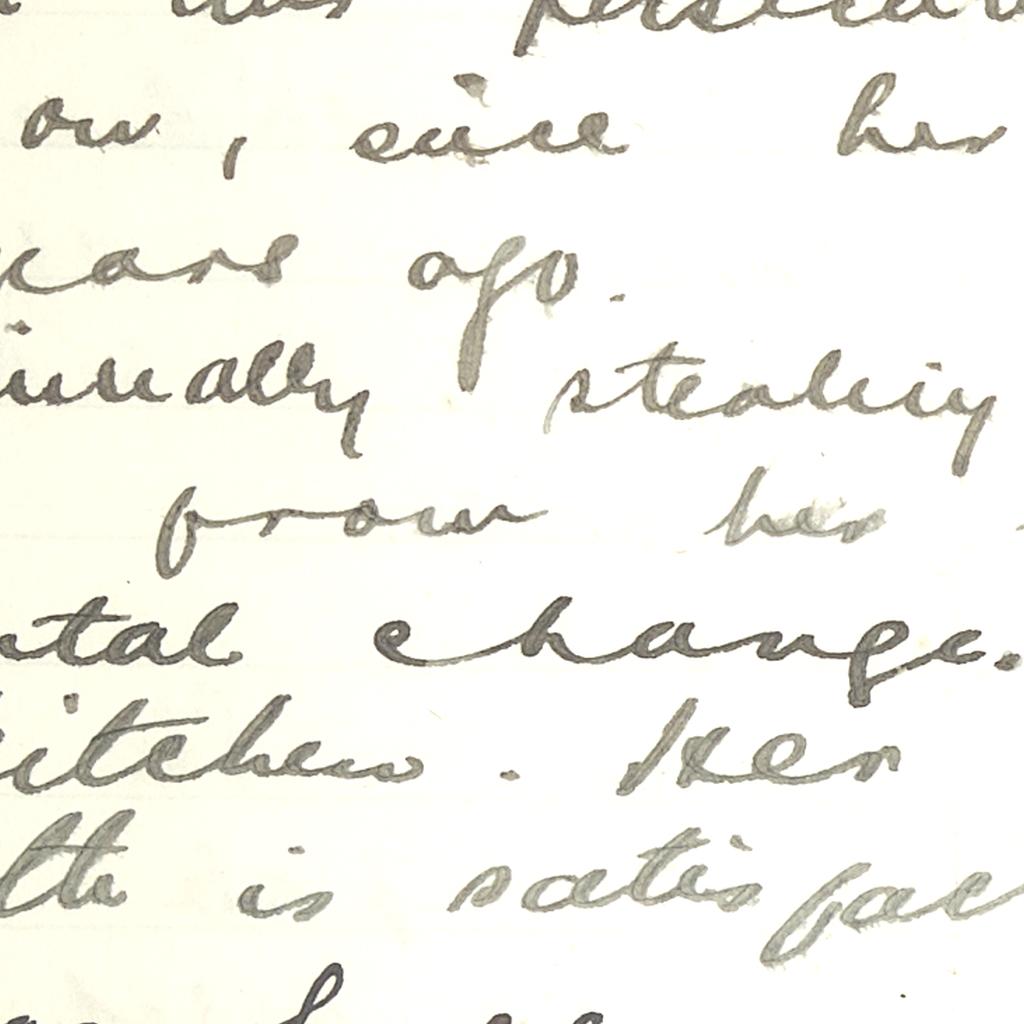 on, since her
years ago.
inually stealing
from her
ntal change.
kitchen. Her
lth is satisfac